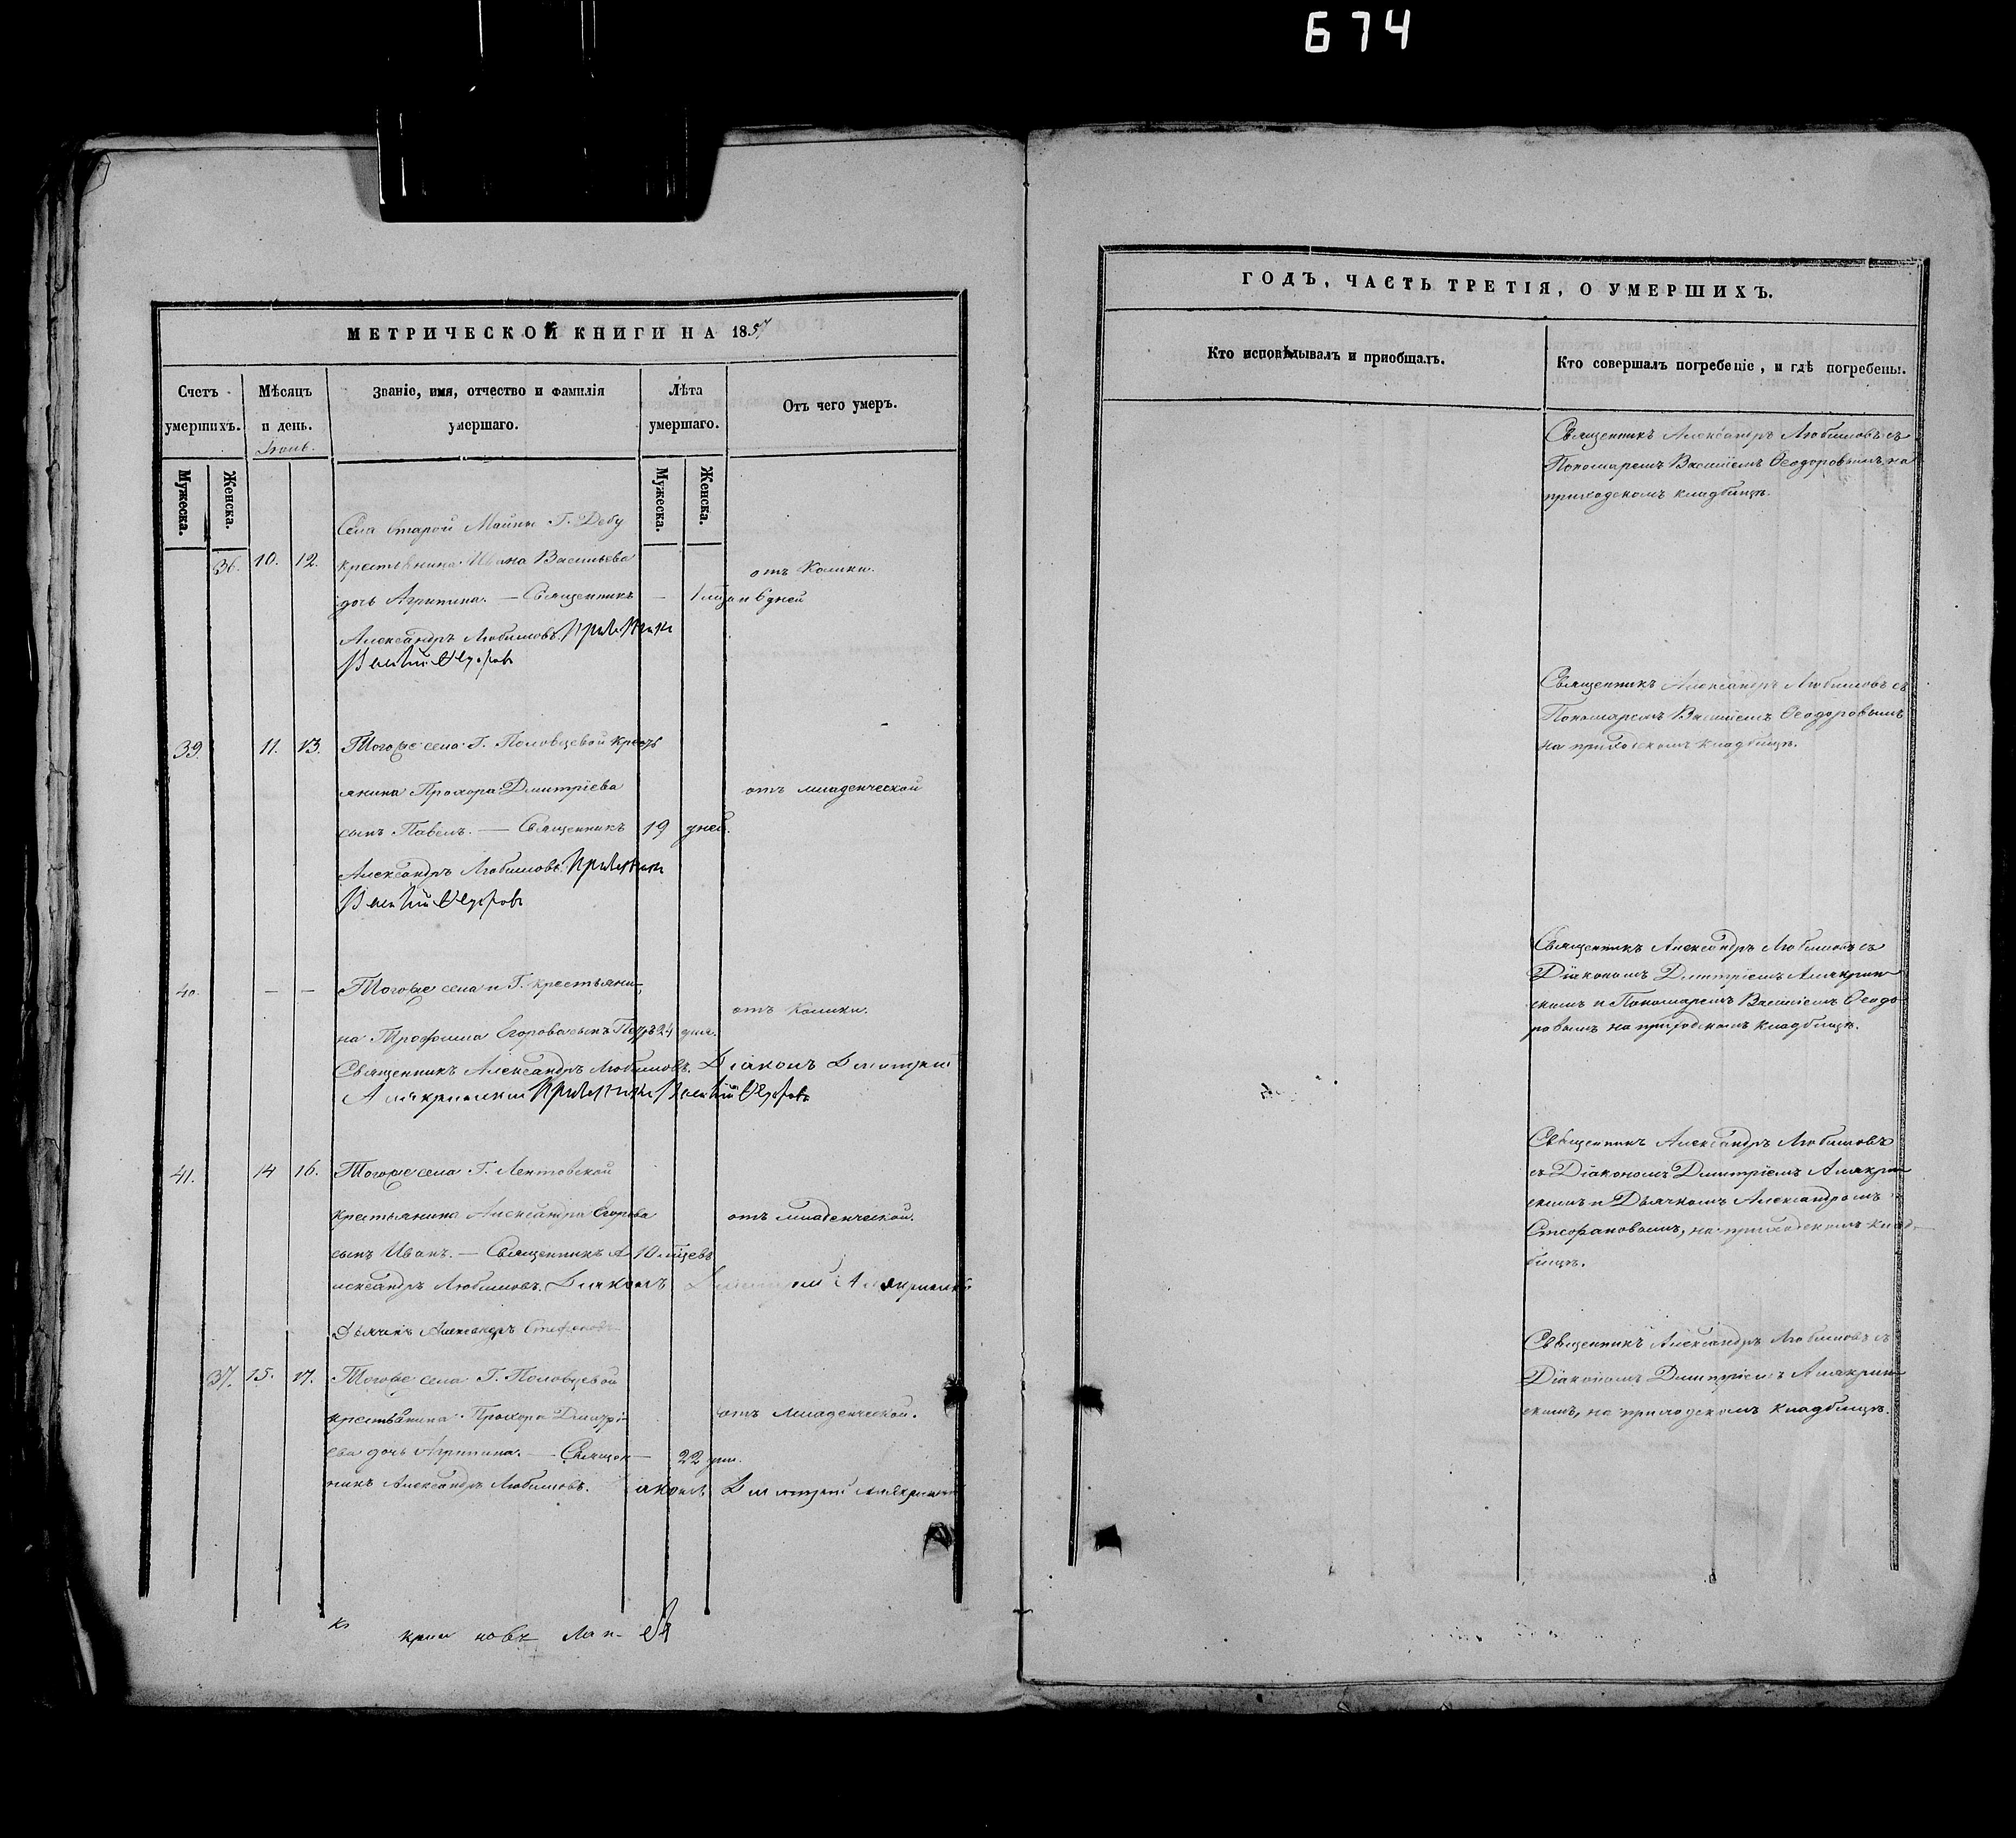 674
МЕТРИЧЕСКОЙ КНИГИ НА 1857
Счетъ умершихъ.
Мѣсяцъ и день.
Званіе, имя, отчество и фамилія умершаго.
Лѣта умершаго.
Отъ чего умеръ.
Мужеска.
Женска.
Мужеска.
Женска.
Села Старой Майны Г. Дебу
36. 10. 12. крестьянина Ивана Васильева
отъ колики.
дочь Агрипина. — Священникъ — 1 мца и 6 дней
Александръ Любимовъ. Причетникъ
Василій Ѳедоровъ
39. 11. 13. Тогоже села Г. Половцевой кресть
янина Прохора Дмитріева
отъ младенческой
сынъ Павелъ. — Священникъ 19 дней.
Александръ Любимовъ. Причетникъ
Василій Ѳедоровъ
40. — — Тогоже села и Г. крестьяни-
отъ колики.
на Трофима Егорова сынъ Петръ 24 дня.
Священникъ Александръ Любимовъ. Діаконъ Дмитрій
Алякринскій Причетникъ Василій Ѳедоровъ
41. 14 16. Тогоже села Г. Лентовской
крестьянина Александра Егорова
отъ младенческой.
сынъ Иванъ. — Священникъ А 10 мцевъ
лександръ Любимовъ. Діаконъ Дмитрій Алякринскій
Дьячекъ Александръ Стефановъ
37. 15. 17. Тогоже села Г. Половцевой
крестьянина Прохора Дмитрі-
отъ младенческой.
ева дочь Агрипина. — Священ — 22 дни.
никъ Александръ Любимовъ. іаконъ Дмитрій Алякринскій
ГОДЪ, ЧАСТЬ ТРЕТІЯ, О УМЕРШИХЪ.
Кто исповѣдывалъ и пріобщалъ.
Кто совершалъ погребеніе, и гдѣ погребены.
Священникъ Александръ Любимовъ съ
Пономаремъ Василіемъ Ѳеодоровымъ, на
приходскомъ кладбищѣ.
Священникъ Александръ Любимовъ съ
Пономаремъ Василіемъ Ѳеодоровымъ
на приходскомъ кладбищѣ.
Священникъ Александръ Любимовъ съ
Діакономъ Дмитріемъ Алякрин
скимъ и Пономаремъ Василіемъ Ѳеодо
ровымъ на приходскомъ кладбищѣ.
Священникъ Александръ Любимовъ
съ Діакономъ Дмитріемъ Алякрин
скимъ и Дьячкомъ Александромъ
Стефановымъ, на приходскомъ клад-
бищѣ.
Священникъ Александръ Любимовъ съ
Діакономъ Дмитріемъ Алякрин
скимъ, на приходскомъ кладбищѣ.